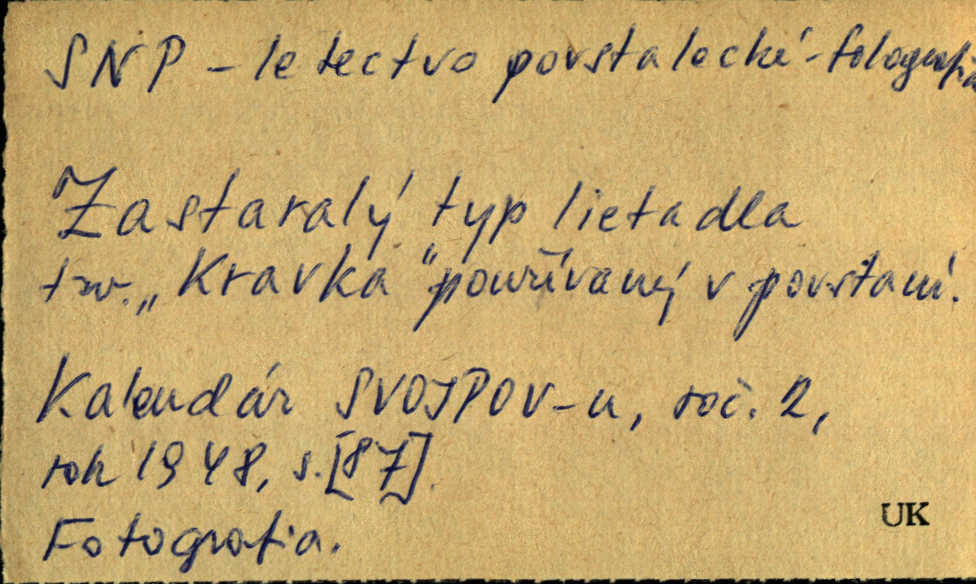 SNP - letectvo povstalecké - fotografia
Zastaralý typ lietadla
tzv. „Kravka“ používaný v povstaní.
Kalendár SVOJPOV-u, roč. 2,
rok 1948, s. [87].
Fotografia.
UK